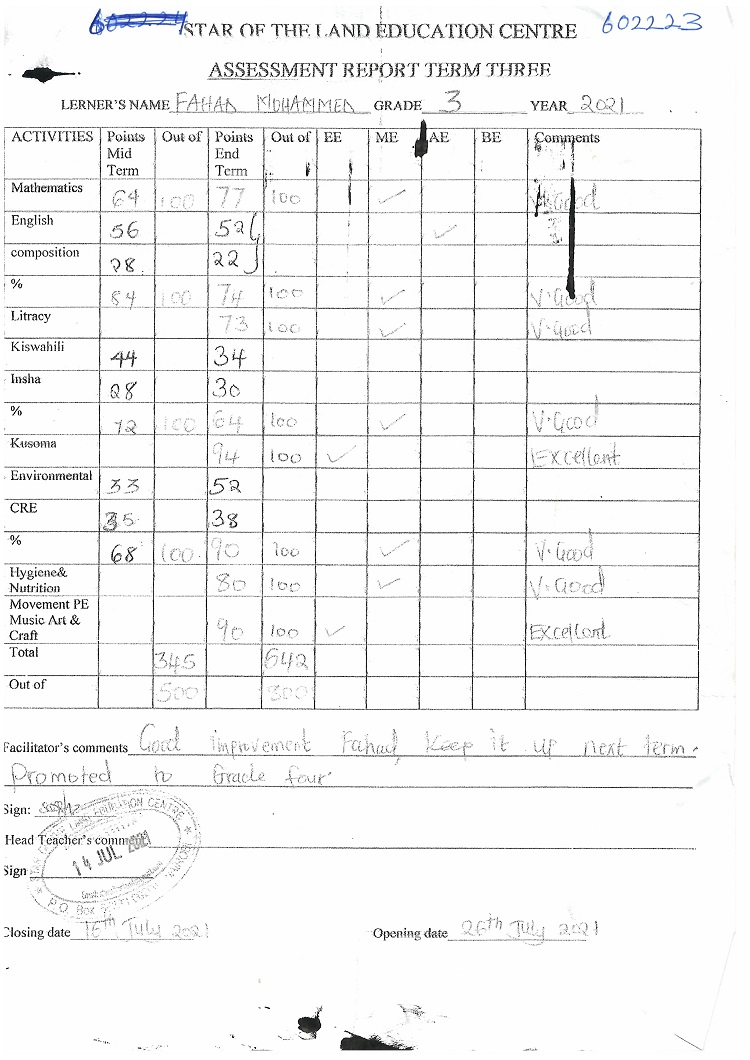 602224 STAR OF THE LAND EDUCATION CENTRE 602223
ASSESSMENT REPORT TERM THREE
LERNER'S NAME FAHAD MOHAMMED GRADE 3 YEAR 2021
ACTIVITIES Points Mid Term Out of Points End Term Out of EE ME AE BE Comments
Mathematics 64 100 77 100 ✓ V.Good
English 56 52 ✓
composition 28 22
% 84 100 74 100 ✓ V.Good
Litracy 73 100 ✓ V.Good
Kiswahili 44 34
Insha 28 30
% 72 100 64 100 ✓ V.Good
Kusoma 94 100 ✓ Excellent
Environmental 33 52
CRE 35 38
% 68 100 90 100 ✓ V.Good
Hygiene& Nutrition 80 100 ✓ V.Good
Movement PE Music Art & Craft 90 100 ✓ Excellent
Total 345 642
Out of 500 800
Facilitator's comments Good improvement Fahad, Keep it up next term.
Promoted to Grade four
Sign:
Head Teacher's comment
Sign
14 JUL 2021
P.O. Box
Closing date 16th July 2021 Opening date 26th July 2021